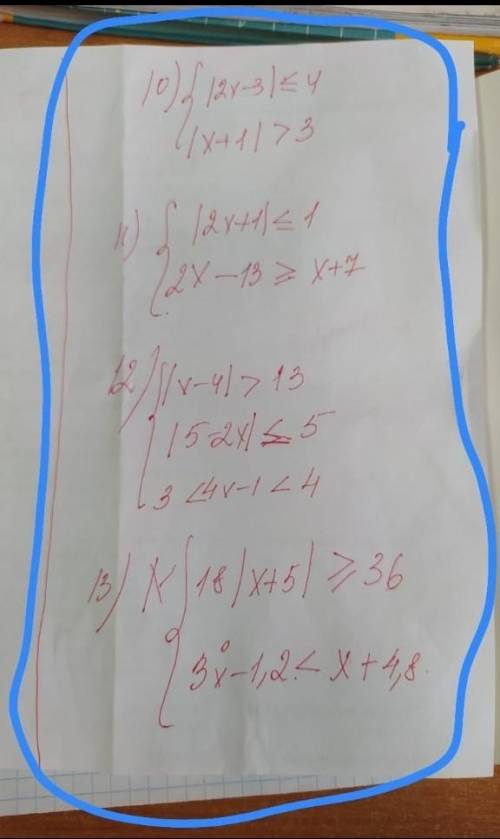 10) { |2x-3| ≤ 4
|x+1| > 3
11) { |2x+1| ≤ 1
2x-13 ≥ x+7
12) { |x-4| > 13
|5-2x| ≤ 5
3 < 4x-1 < 4
13) { 18|x+5| ≥ 36
3x-1,2 < x+4,8